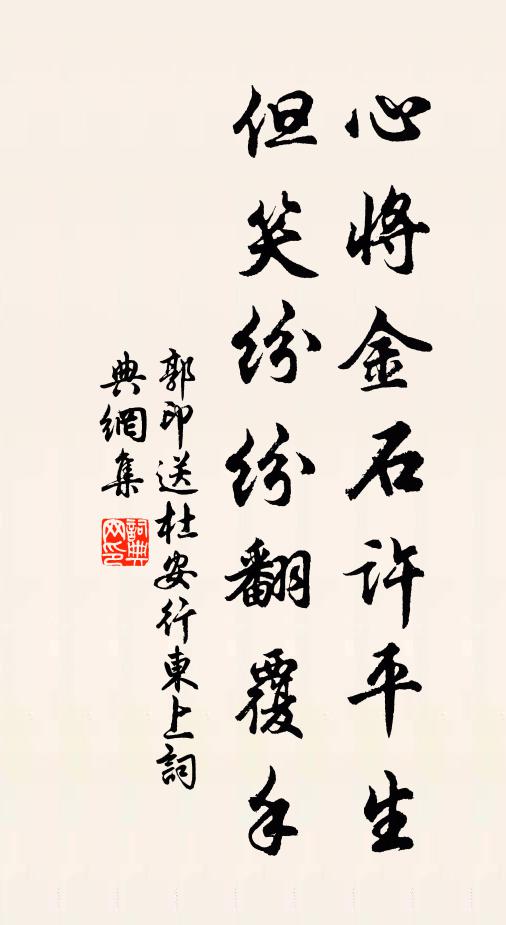 心將金石許平生
但笑紛紛翻覆手
郭印送杜安行東上詞
典網集
詞典網印